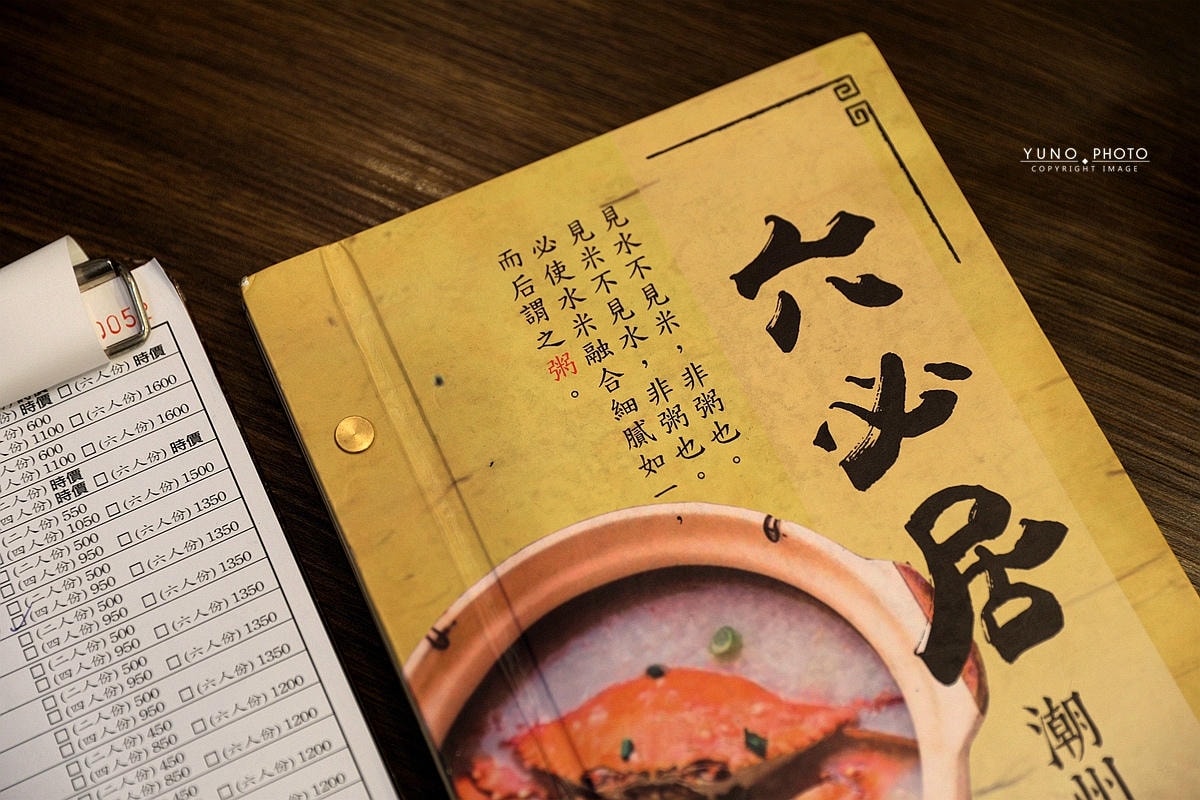 YUNO PHOTO
COPYRIGHT IMAGE
六必居
潮州
見水不見米，非粥也。
見米不見水，非粥也。
必使水米融合細膩如一，
而后謂之粥。
005
□(六人份) 時價
時價 □(六人份) 1600
600
1100 □(六人份) 1600
600
1100 □(六人份) 時價
(二人份) 時價
(四人份) 時價 □(六人份) 1500
(二人份) 550
(四人份) 1050 □(六人份) 1350
□(二人份) 500
□(四人份) 950 □(六人份) 1350
□(二人份) 500
□(四人份) 950 □(六人份) 1350
□(二人份) 500
□(四人份) 950 □(六人份) 1350
□(二人份) 500
□(四人份) 950 □(六人份) 1350
□(二人份) 500
□(四人份) 950 □(六人份) 1350
□(二人份) 450
□(四人份) 850 □(六人份) 1200
□(二人份) 450
□(四人份) 850 □(六人份) 1200
450 □(六人份) 1200